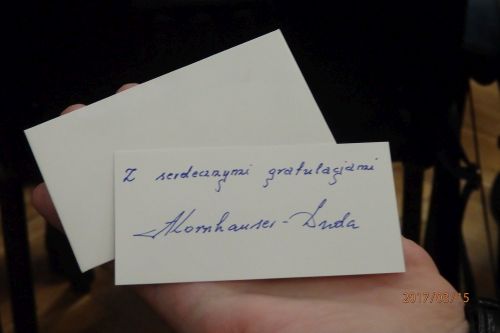 Z serdecznymi gratulacjami
AKornhauser-Duda
2017/03/15